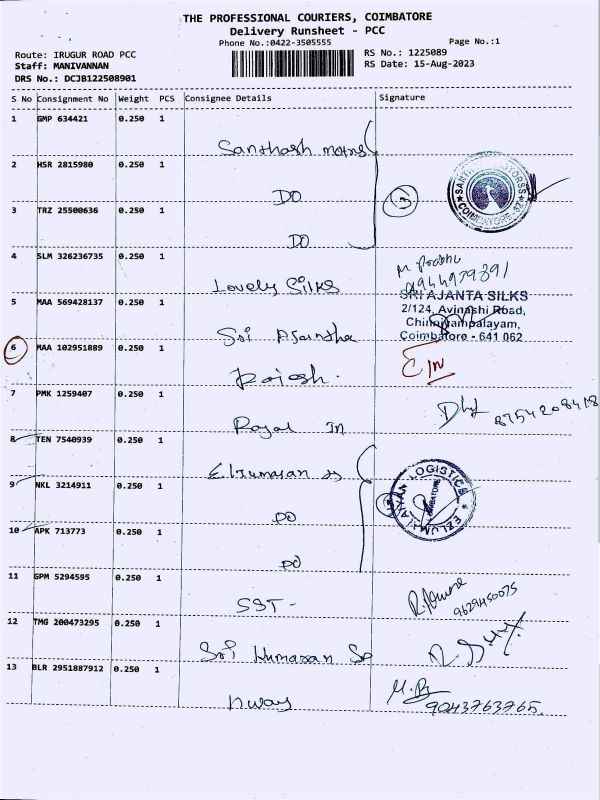 THE PROFESSIONAL COURIERS, COIMBATORE
Delivery Runsheet - PCC
Phone No.:0422-3505555
Page No.:1
Route: IRUGUR ROAD PCC
RS No.: 1225089
Staff: MANIVANNAN
RS Date: 15-Aug-2023
DRS No.: DCJB122508901
S No Consignment No Weight PCS Consignee Details Signature
1 GMP 634421 0.250 1
Santhosh motors
2 HSR 2815980 0.250 1
DO
3
3 TRZ 25500636 0.250 1
DO
4 SLM 326236735 0.250 1
Lovely Silks
M Prabhu
5 MAA 569428137 0.250 1
SRI AJANTA SILKS
2/124, Avinashi Road,
Chinniyampalayam,
Coimbatore - 641 062
Sri Ajantha
6 MAA 102951889 0.250 1
Rajesh.
7 PMK 1259407 0.250 1
Royal In
8754208418
8 TEN 7540939 0.250 1
9 NKL 3214911 0.250 1
DO
LOGISTICS
COIMBATORE
10 APK 713773 0.250 1
DO
11 GPM 5294595 0.250 1
SST -
9629450075
12 TMG 200473295 0.250 1
Sri Kumaran Sp
13 BLR 2951887912 0.250 1
nways
9043763765.